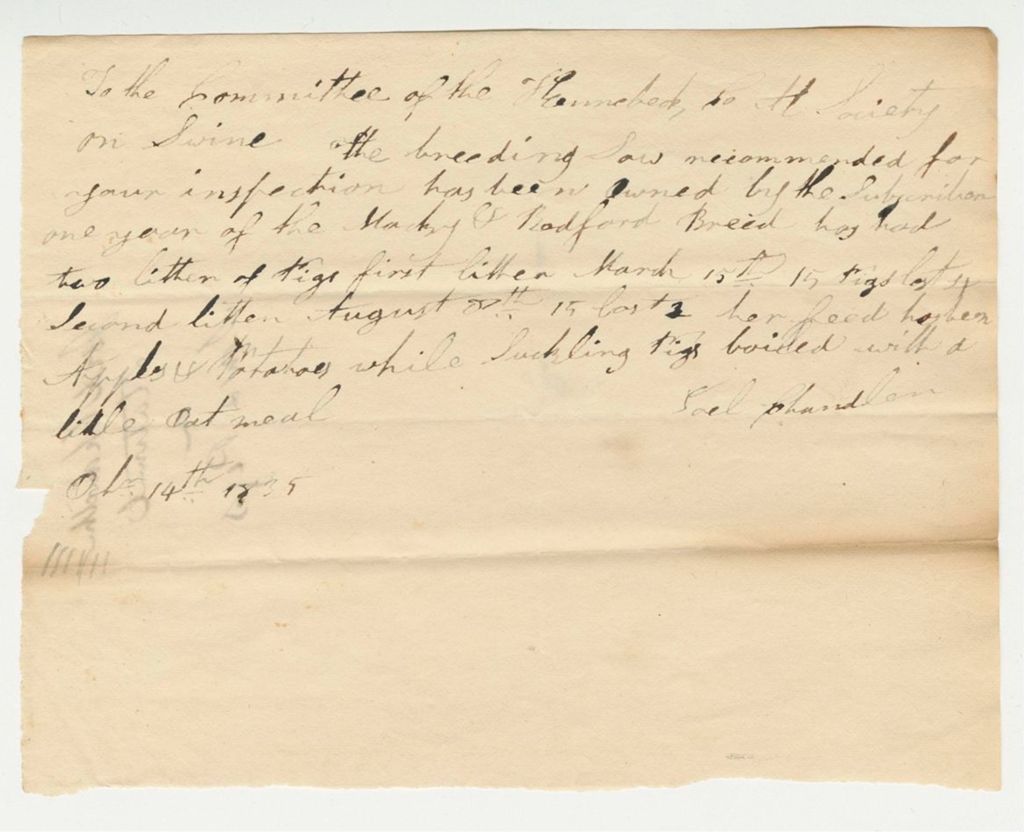 To the Committee of the Kennebeck Co At Society
on Swine the breeding Sow recommended for
your inspection has been owned by the Subscriber
one year of the Macky & Bedford Breed has had
two litter of Pigs first litter March 15th 15 Pigs lost 4
Second litter August 8th 15 lost 2 her feed has been
Apples & Potatoes while Suckling Pigs boiled with a
little Oat meal Joel Chandler
Octr 14th 1835